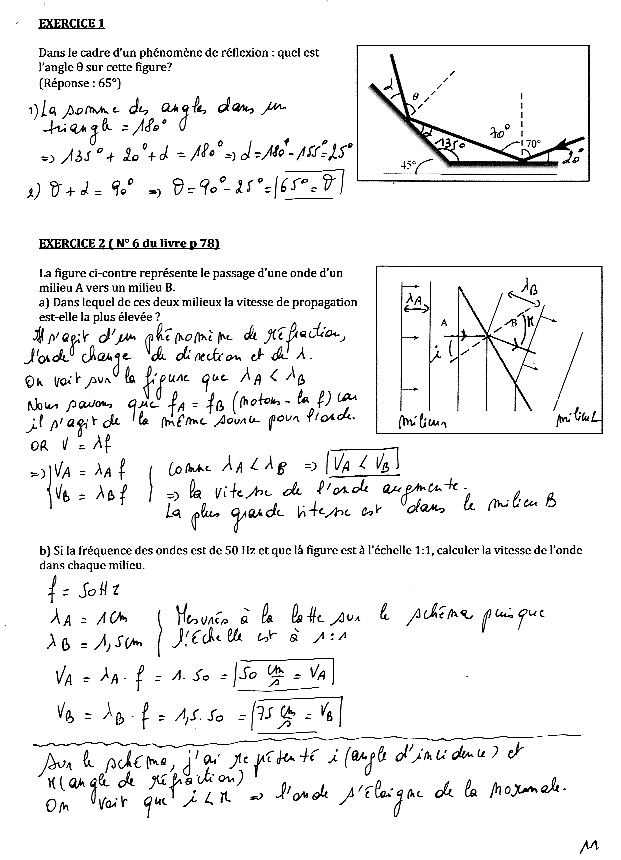 EXERCICE 1
Dans le cadre d'un phénomène de réflexion : quel est
l'angle θ sur cette figure?
(Réponse : 65°)
1) La somme des angles dans un
triangle = 180°
=> 135° + 20° + α = 180° => α = 180° - 155° = 25°
2) θ + α = 90° => θ = 90° - 25° = 65° = θ
α
θ
α
135°
45°
70°
70°
20°
EXERCICE 2 ( N° 6 du livre p 78)
La figure ci-contre représente le passage d'une onde d'un
milieu A vers un milieu B.
a) Dans lequel de ces deux milieux la vitesse de propagation
est-elle la plus élevée ?
Il s'agit d'un phénomène de réfraction,
l'onde change de direction et de λ.
On voit sur la figure que λA < λB
Nous savons que fA = fB (notons-la f) car
il s'agit de la même source pour l'onde.
OR V = λf
=> VA = λA f
VB = λB f
Comme λA < λB => VA < VB
=> la vitesse de l'onde augmente.
La plus grande vitesse est dans le milieu B
λA
λB
A
B
i
r
milieu 1
milieu 2
b) Si la fréquence des ondes est de 50 Hz et que là figure est à l'échelle 1:1, calculer la vitesse de l'onde
dans chaque milieu.
f = 50 Hz
λA = 1 cm
λB = 1,5 cm
Mesurés à la latte sur le schéma puisque
l'échelle est à 1:1
VA = λA · f = 1 · 50 = 50 cm/s = VA
VB = λB · f = 1,5 · 50 = 75 cm/s = VB
Sur le schéma, j'ai représenté i (angle d'incidence) et
r (angle de réfraction)
On voit que i < r => l'onde s'éloigne de la normale.
11